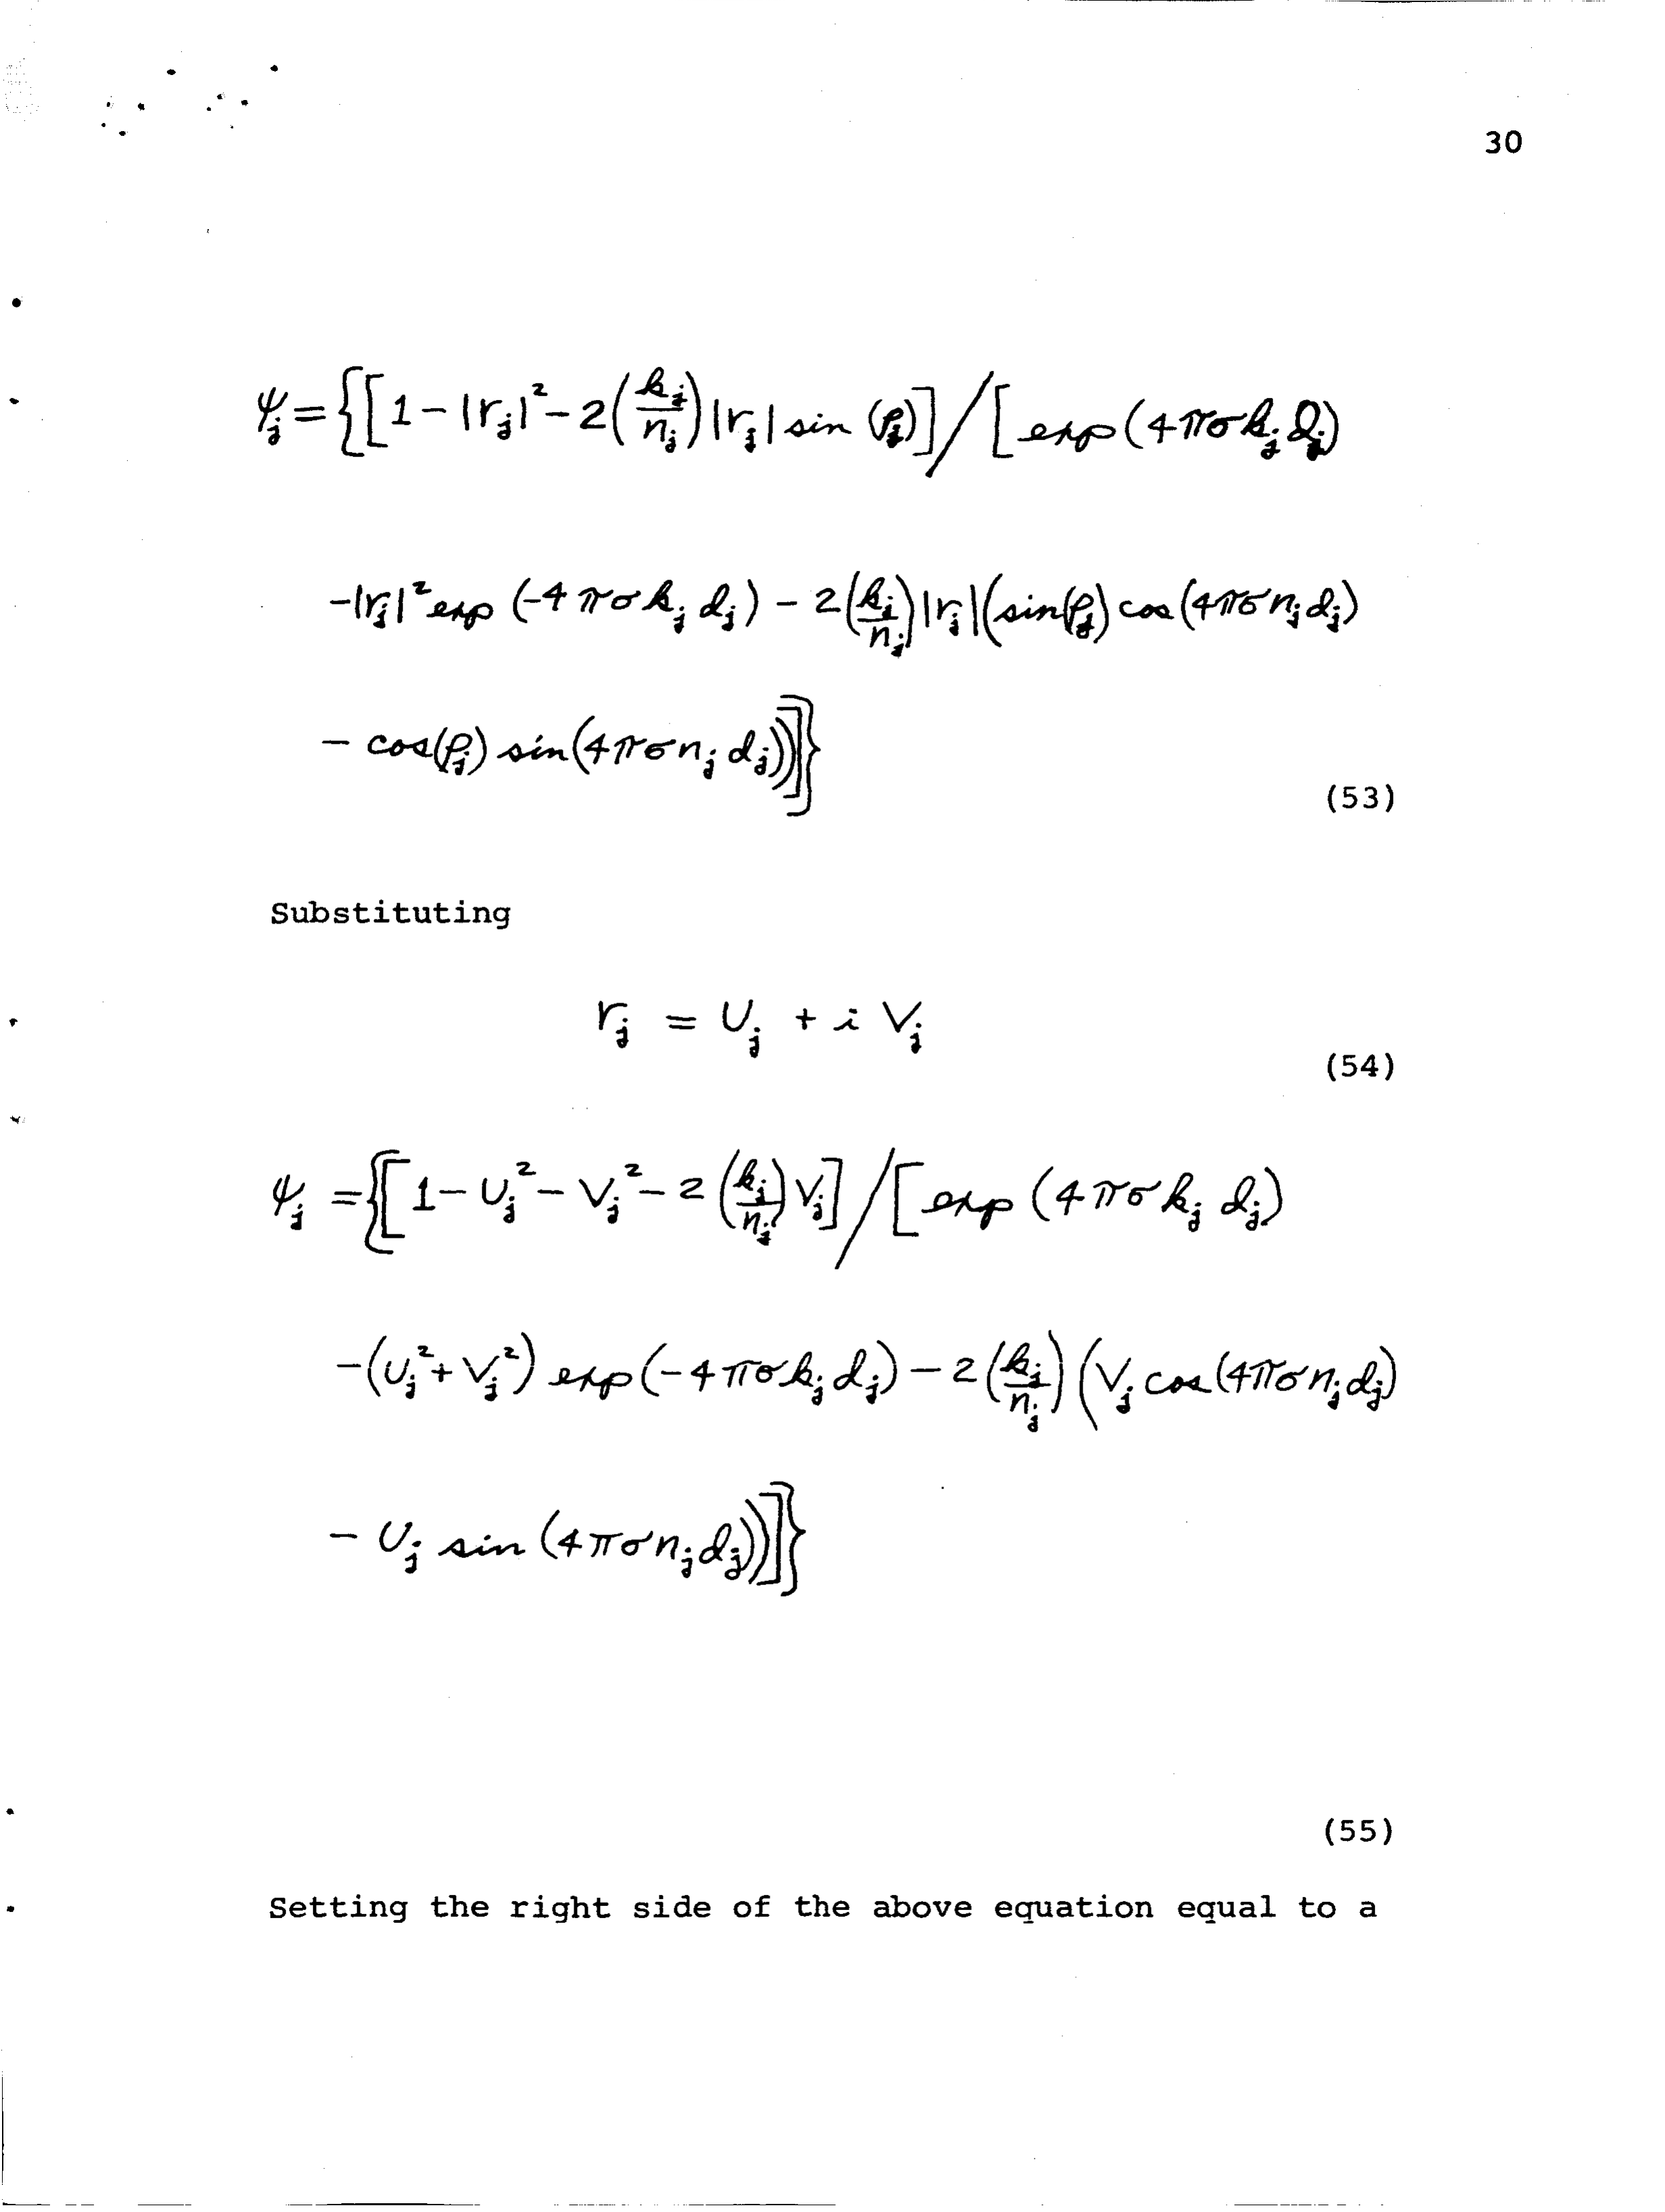 30
ψ_j = {[1 - |r_j|² - 2(k_j/n_j)|r_j| sin (ρ_j)] / [exp(4πσk_j d_j)
-|r_j|² exp (-4πσk_j d_j) - 2(k_j/n_j)|r_j|(sin(ρ_j) cos(4πσn_j d_j)
- cos(ρ_j) sin(4πσn_j d_j))]}
(53)
Substituting
r_j = U_j + i V_j
(54)
ψ_j = {[1 - U_j² - V_j² - 2(k_j/n_j) V_j] / [exp (4πσk_j d_j)
-(U_j² + V_j²) exp(-4πσk_j d_j) - 2(k_j/n_j) (V_j cos(4πσn_j d_j)
- U_j sin (4πσn_j d_j))]}
(55)
Setting the right side of the above equation equal to a